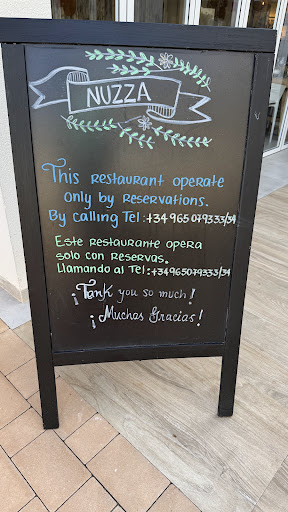 NUZZA
This restaurant operate
only by reservations.
By calling Tel: +34965079333/34
Este restaurante opera
solo con reservas.
Llamando al Tel: +34965079333/34
¡Tank you so much!
¡Muchas Gracias!